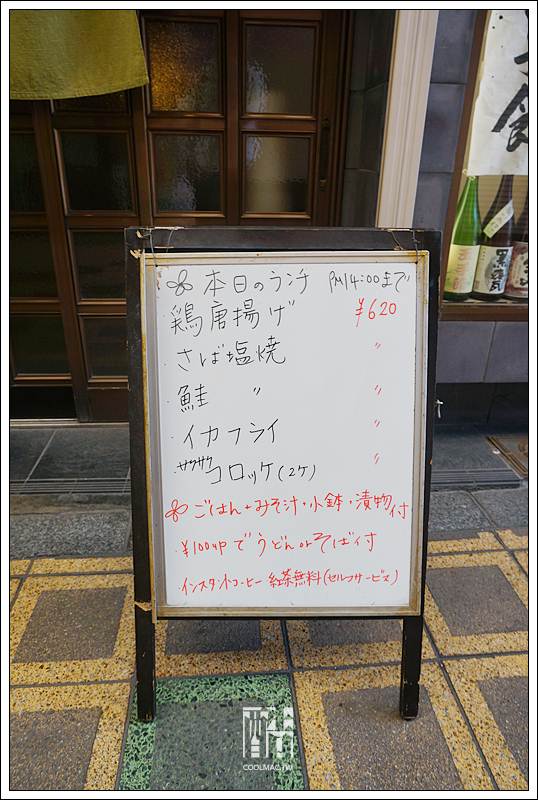 本日のランチ PM14:00まで
鶏唐揚げ ¥620
さば塩焼 〃
鮭 〃 〃
イカフライ 〃
サクサクコロッケ(2ケ) 〃
ごはん+みそ汁・小鉢・漬物付
¥100upでうどんorそば付
インスタントコーヒー 紅茶無料(セルフサービス)
酷
COOLMAC.TW